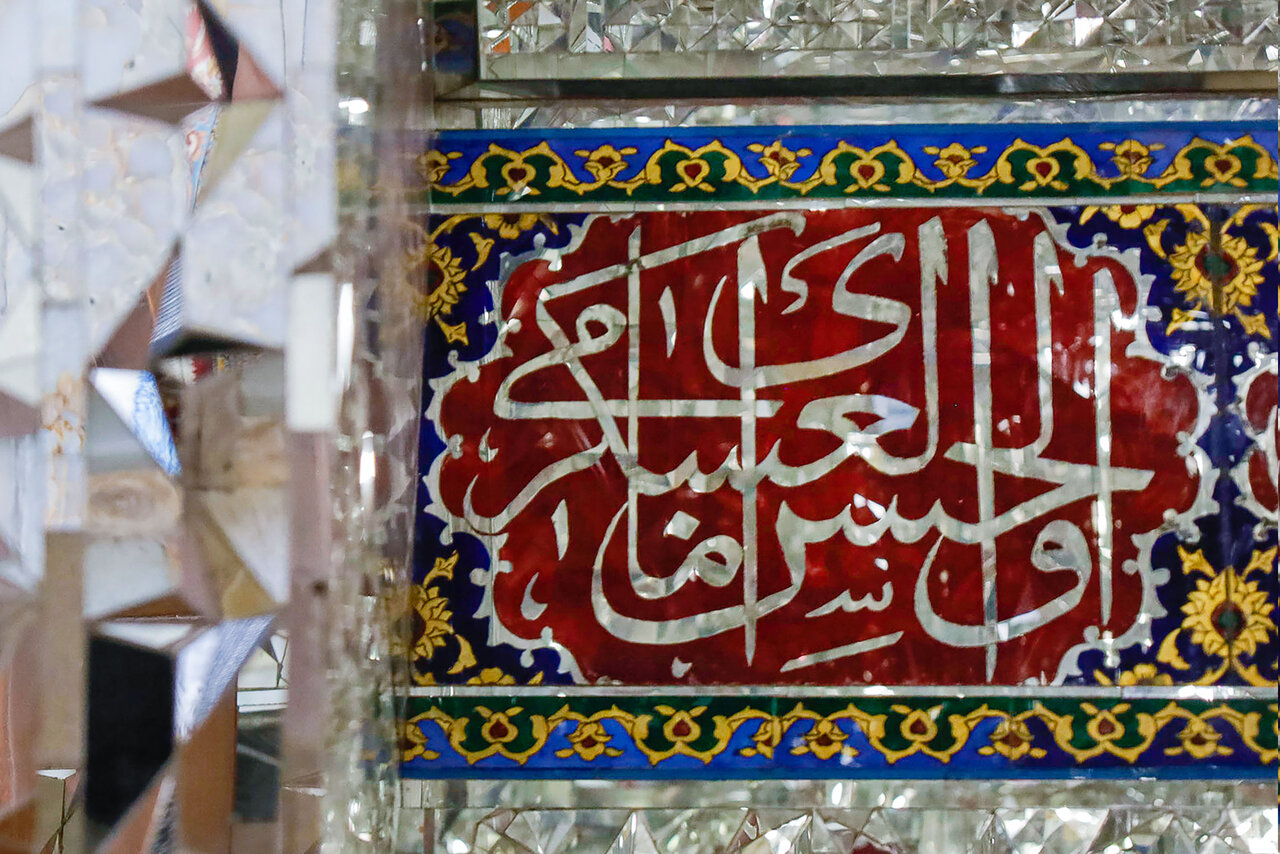 والحسن العسکری امامی